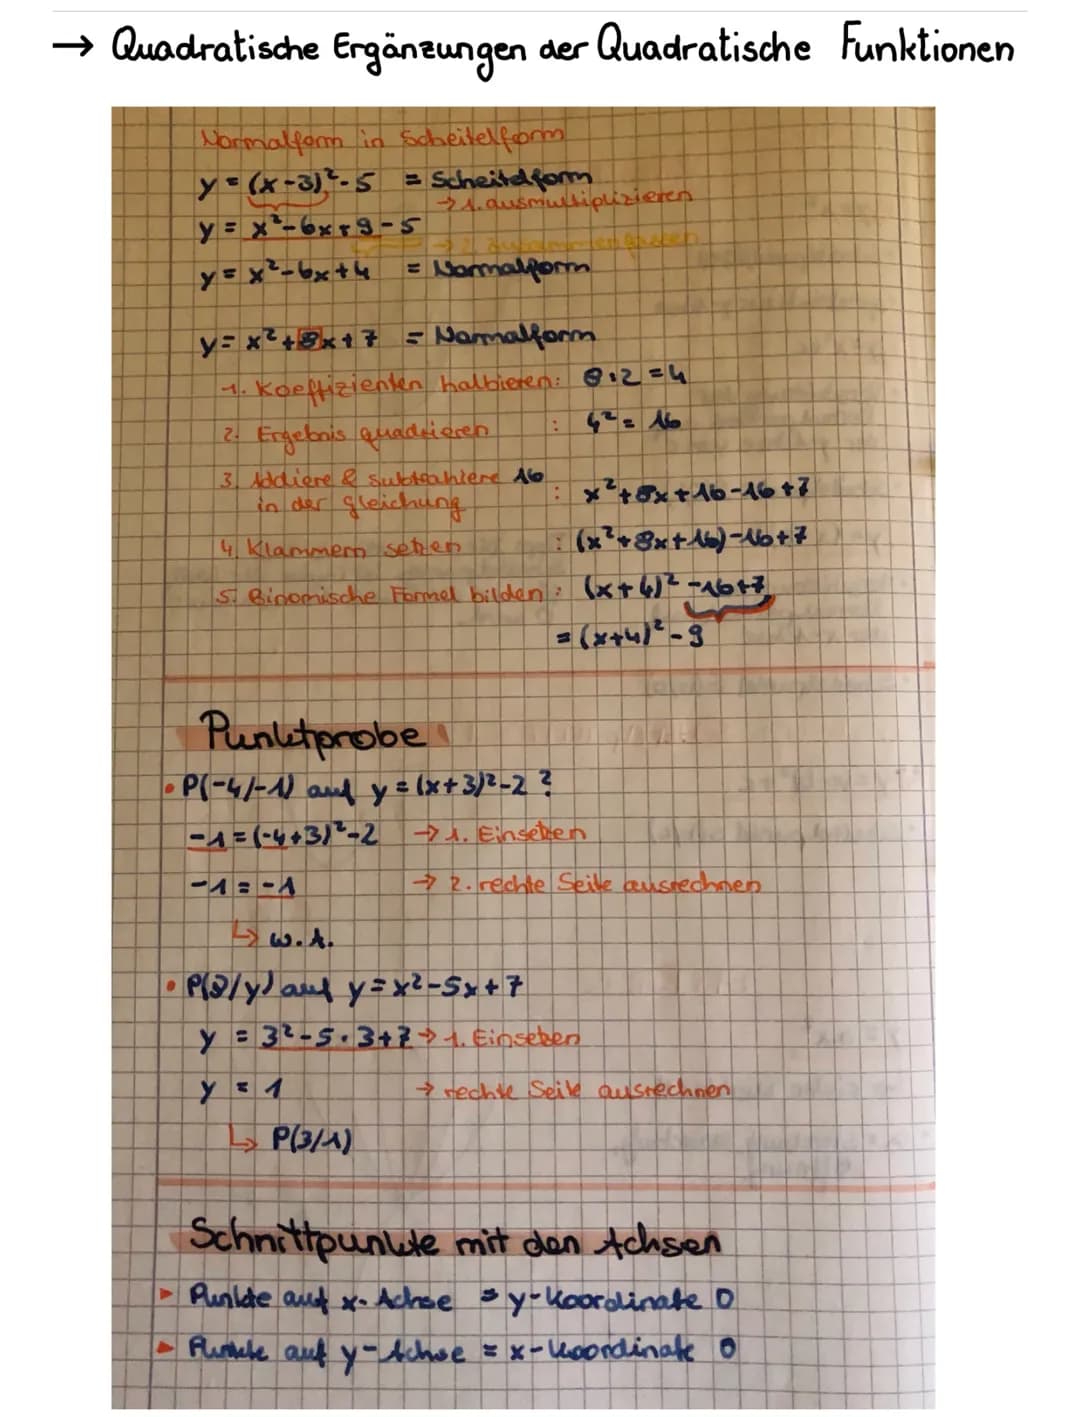 → Quadratische Ergänzungen der Quadratische Funktionen
Normalform in Scheitelform
y = (x-3)²-5 = Scheitelform
→ 1. ausmultiplizieren
y = x²-6x+9-5
→ 2. zusammenfassen
y = x²-6x+4 = Normalform
y = x²+8x+7 = Normalform
1. Koeffizienten halbieren: 8:2 = 4
2. Ergebnis quadrieren : 4² = 16
3. Addiere & subtrahiere 16
in der gleichung : x²+8x+16-16+7
4. Klammern setzen : (x²+8x+16)-16+7
5. Binomische Formel bilden : (x+4)² -16+7
= (x+4)²-9
Punktprobe
• P(-4/-1) auf y = (x+3)²-2 ?
-1 = (-4+3)²-2 → 1. Einsetzen
-1 = -1 → 2. rechte Seite ausrechnen
↳ w.A.
• P(3/y) auf y = x²-5x+7
y = 3²-5·3+7 → 1. Einsetzen
y = 1 → rechte Seite ausrechnen
↳ P(3/1)
Schnittpunkte mit den Achsen
▸ Punkte auf x-Achse = y-Koordinate 0
▸ Punkte auf y-Achse = x-Koordinate 0